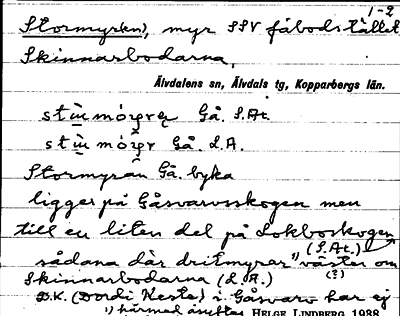 1-2
Stormyr(en), myr SSV fäbodstället
Skinnarbodarna,
Älvdalens sn, Älvdals tg, Kopparbergs län.
Gå. S.At.
Gå. L.A.
Stormyran Gå. byka
ligger på Gåsvarvsskogen men
till en liten del på Lokboskogen
(S.At.)
sådana där dritmyrar 1) väster om
(?)
Skinnarbodarna (L.A.)
D.K. (Dordi Keste) i Gåsvarv har ej
1) härmed åsyftas HELGE LINDBERG 1938